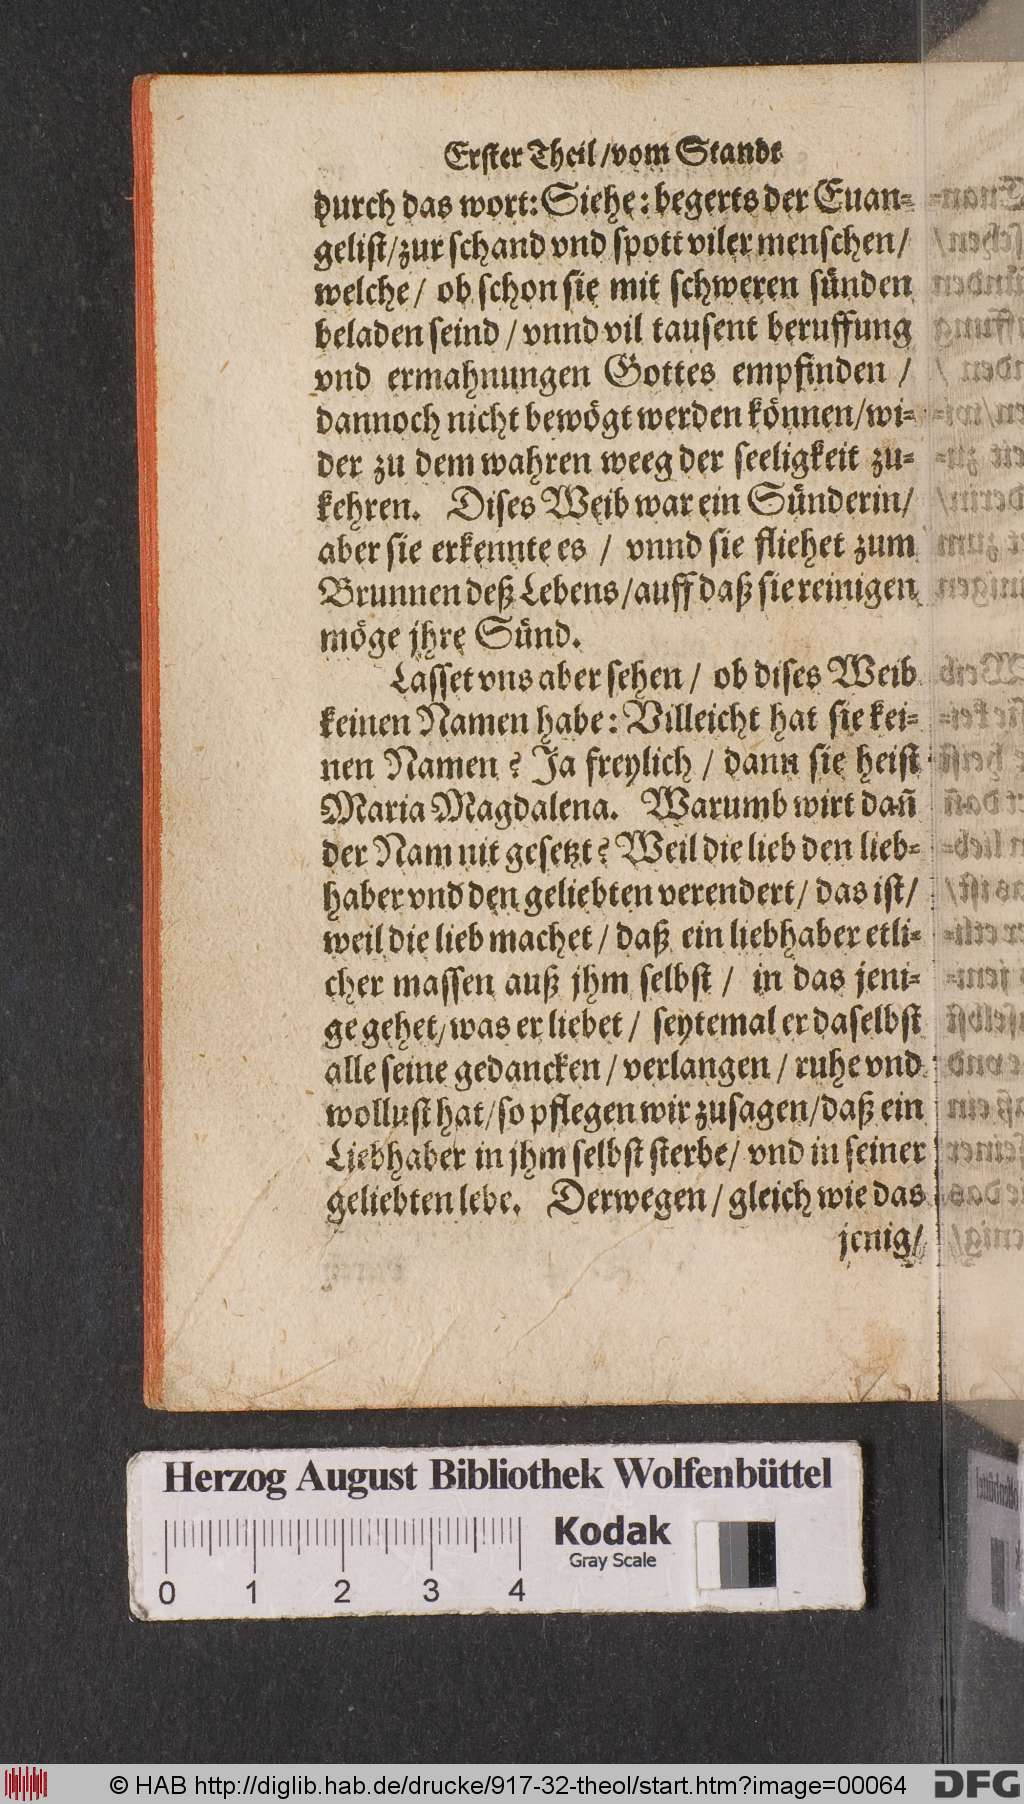 Erster Theil/vom Stande
durch das wort: Siehe: begerts der Euan⸗
gelist/zur schand vnd spott viler menschen/
welche/ ob schon sie mit schweren sünden
beladen seind/ vnnd vil tausent beruffung
vnd ermahnungen Gottes empfinden /
dannoch nicht bewögt werden können/wi⸗
der zu dem wahren weeg der seeligkeit zu⸗
kehren. Dises Weib war ein Sünderin/
aber sie erkennte es / vnnd sie fliehet zum
Brunnen deß Lebens/auff daß sie reinigen
möge jhre Sünd.
Lasset vns aber sehen/ ob dises Weib
keinen Namen habe: Villeicht hat sie kei⸗
nen Namen? Ja freylich/ dann sie heist
Maria Magdalena. Warumb wirt dañ
der Nam nit gesetzt? Weil die lieb den lieb⸗
haber vnd den geliebten verendert/ das ist/
weil die lieb machet/ daß ein liebhaber etli⸗
cher massen auß jhm selbst/ in das jeni⸗
ge gehet/was er liebet/ seytemal er daselbst
alle seine gedancken/ verlangen/ ruhe vnd
wollust hat/so pflegen wir zusagen/daß ein
Liebhaber in jhm selbst sterbe/ vnd in seiner
geliebten lebe. Derwegen/ gleich wie das
jenig/
Herzog August Bibliothek Wolfenbüttel
Kodak
Gray Scale
0 1 2 3 4
© HAB http://diglib.hab.de/drucke/917-32-theol/start.htm?image=00064
DFG